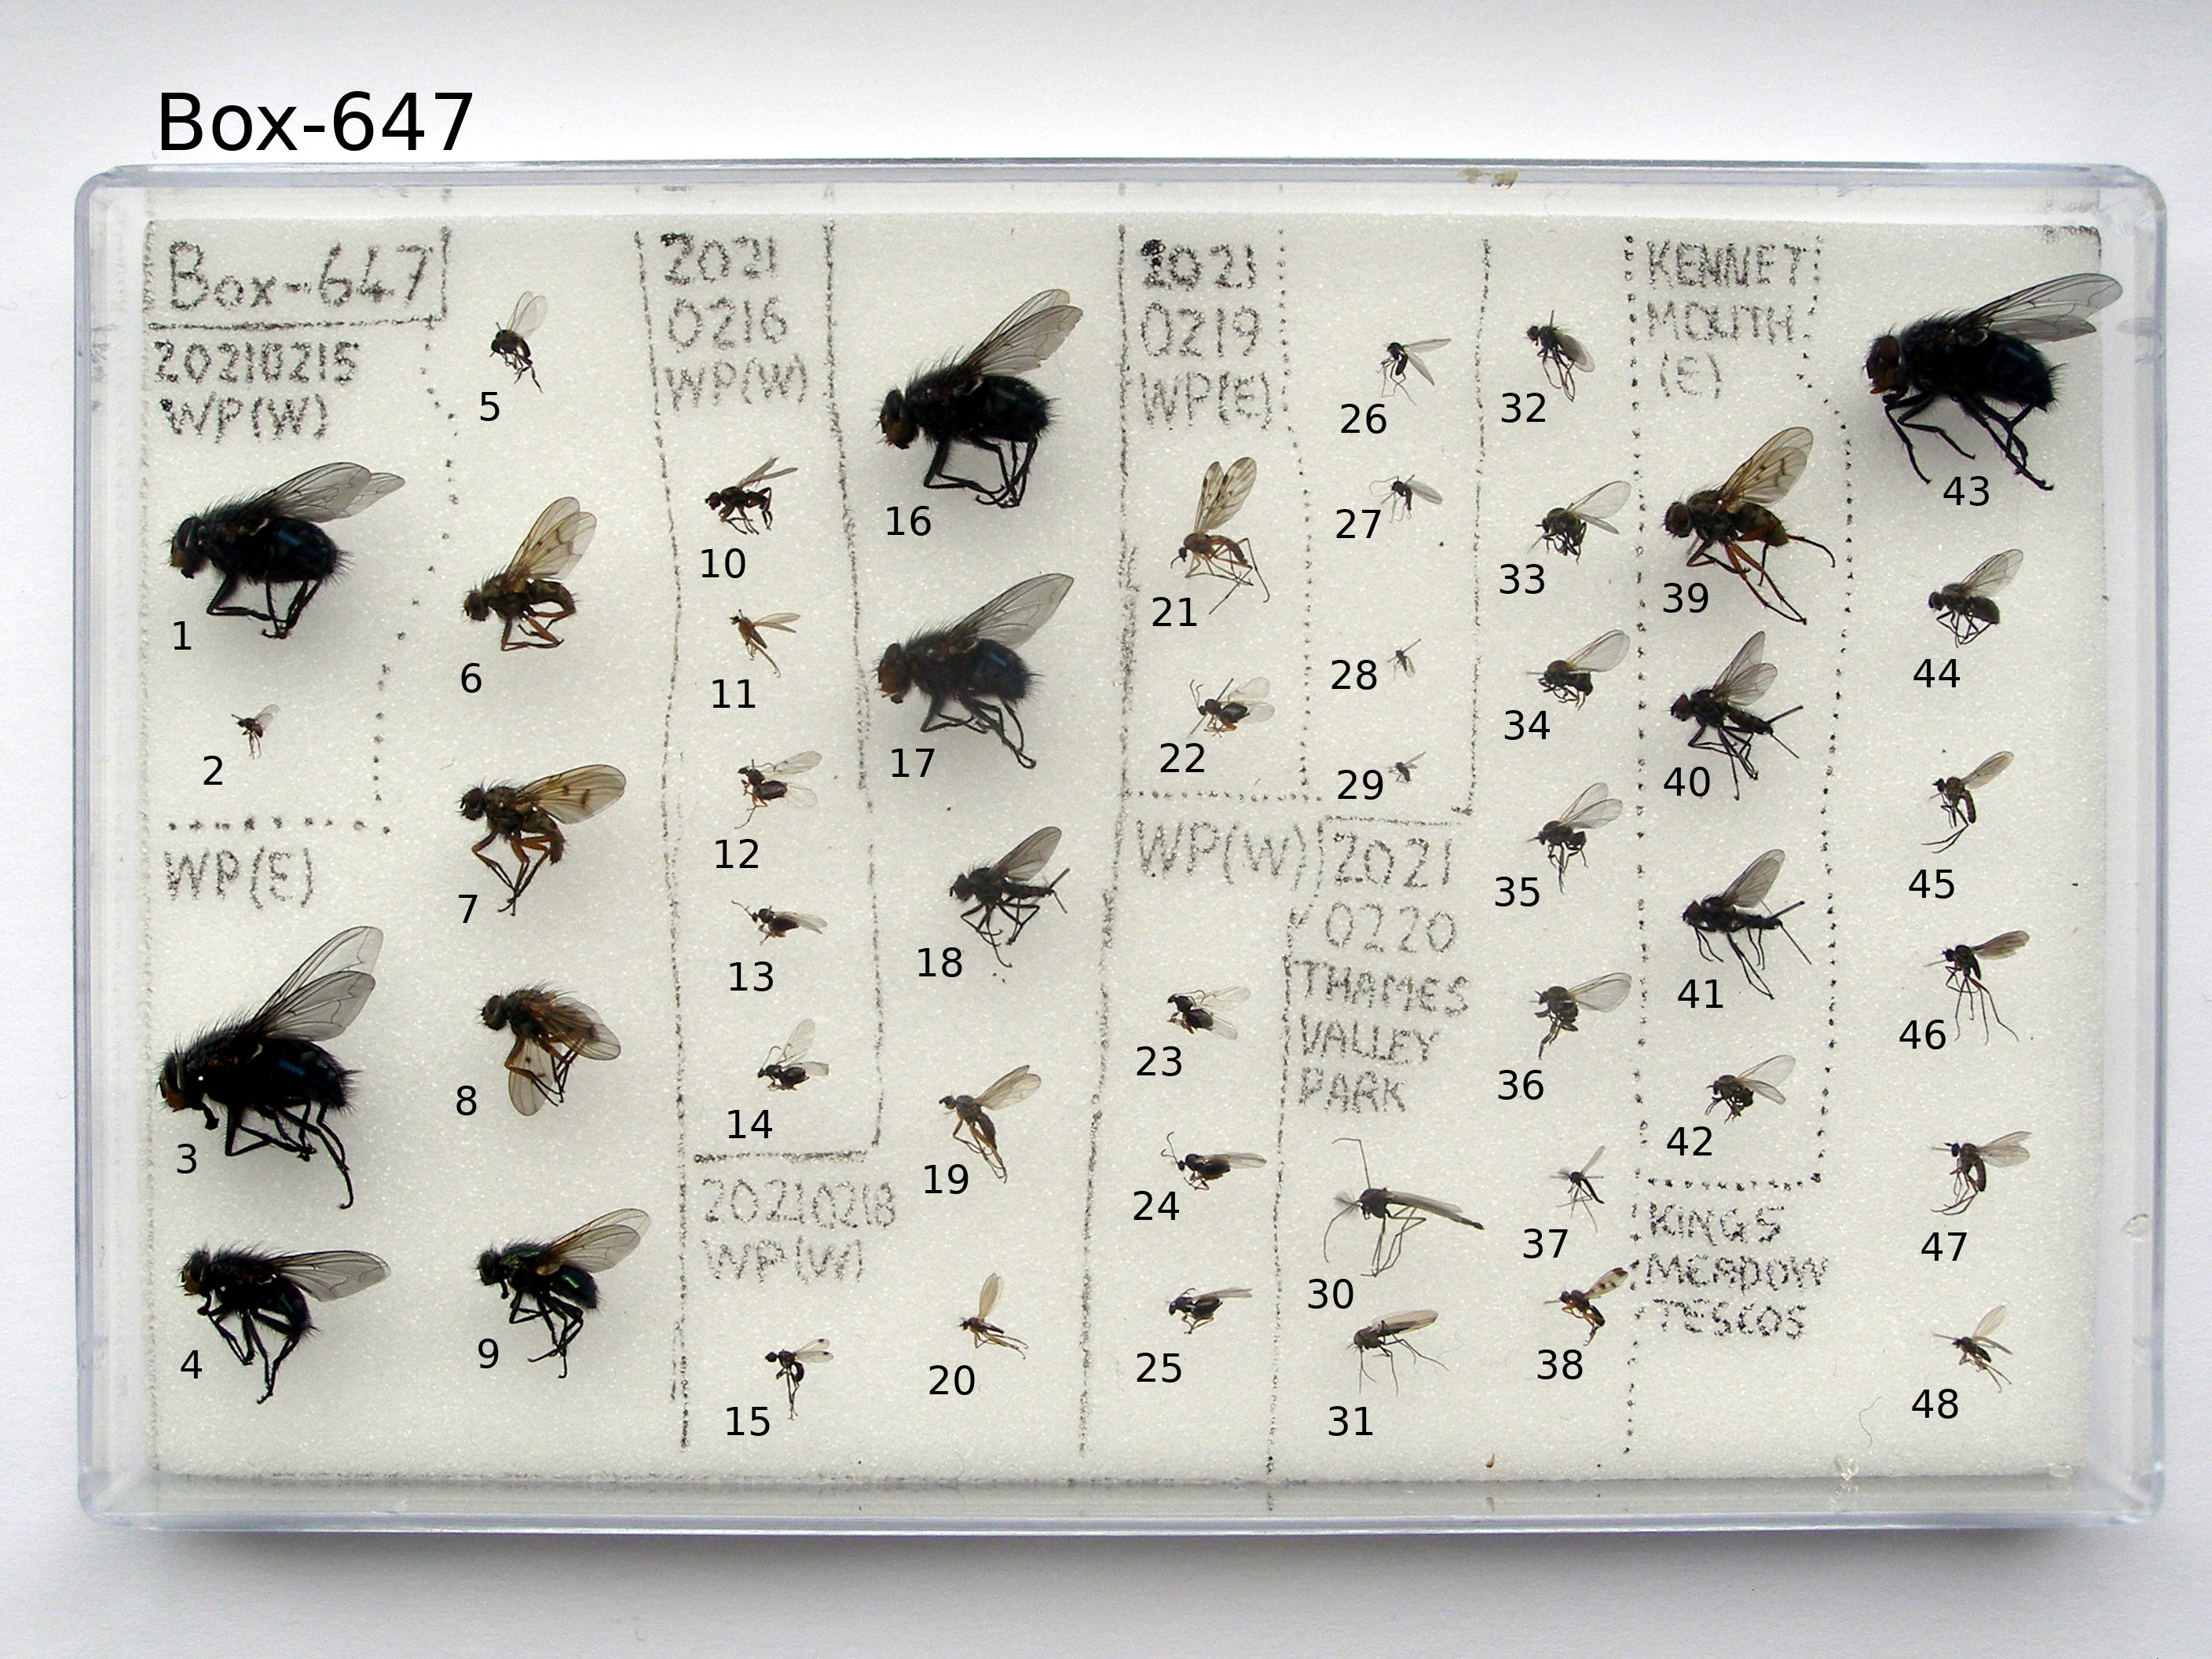 Box-647
Box-647
20210215
WP(W)
1
2
WP(E)
3
4
5
6
7
8
9
2021
0216
WP(W)
10
11
12
13
14
20210218
WP(W)
15
16
17
18
19
20
2021
0219
WP(E)
21
22
WP(W)
23
24
25
26
27
28
29
2021
0220
THAMES
VALLEY
PARK
30
31
32
33
34
35
36
37
38
KENNET
MOUTH
(E)
39
40
41
42
KINGS
MEADOW
TESCOS
43
44
45
46
47
48